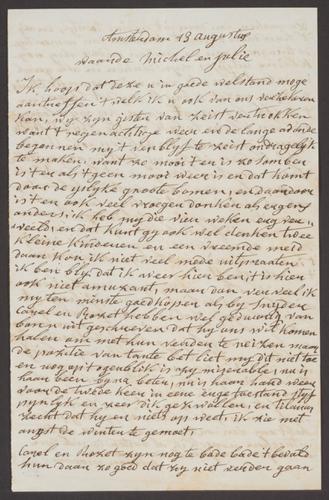 Amsterdam 13 augustus
waarde Michel en Julie
Ik hoop dat deze u in goede welstand moge
aantreffen t welk ik u ook van ons verzekeren
kan, wy zyn gisteren van Zeist vertrokken
want t regenachtige weer en de lange avonde
begonnen my t verblyf te Zeist ondragelyk
te maken, want zo mooi t en is zo somber
is t er als t geen mooi weer is en dat komt
door de yslyke groote bomen, en daardoor
is t en ook veel vroeger donker als ergens
anders, ik heb my die vier weken erg ver
veeld, en dat kunt gy ook wel denken twee
kleine kinderen en een vreemde meid
daar kon ik niet veel mede uitpraaten
ik ben bly dat ik weer hier ben, t is hier
ook niet amuzant, maar dan verveel ik
my ten minste goedkooper als by Snyder
Carel en Rozet hebben wel geduurig van
born uit geschreven dat hy ons wil komen
halen om met hun verder te reizen maar
de pozitie van tante bet liet my dit niet toe
en nog op t ogenblik is zy miserabel, nu is
haar been byna beter, nu is haar hand weer
door de twede keer in eene erge toestand styf
pynlyk en zeer dik gezwollen, en Tilanus
zecht dat hy er niets op weet, ik zie met
angst de winter te gemoet.
Carel en Rozet zyn nog te bade bade t bevald
hun daar zo goed dat zy niet verder gaan